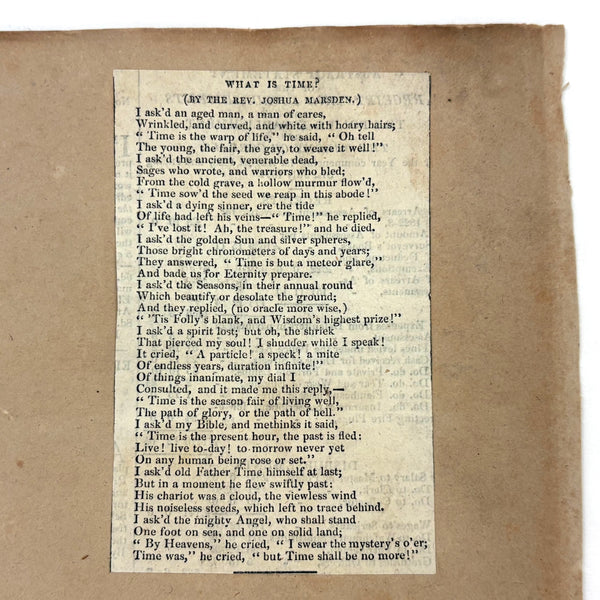 WHAT IS TIME?
(BY THE REV. JOSHUA MARSDEN.)
I ask'd an aged man, a man of cares,
Wrinkled, and curved, and white with hoary hairs;
“ Time is the warp of life,” he said, “ Oh tell
The young, the fair, the gay, to weave it well!”
I ask'd the ancient, venerable dead,
Sages who wrote, and warriors who bled;
From the cold grave, a hollow murmur flow'd,
“ Time sow'd the seed we reap in this abode!”
I ask'd a dying sinner, ere the tide
Of life had left his veins—“ Time!” he replied,
“ I've lost it! Ah, the treasure!” and he died.
I ask'd the golden Sun and silver spheres,
Those bright chronometers of days and years;
They answered, “ Time is but a meteor glare,”
And bade us for Eternity prepare.
I ask'd the Seasons, in their annual round
Which beautify or desolate the ground;
And they replied, (no oracle more wise,)
“ 'Tis Folly's blank, and Wisdom's highest prize!”
I ask'd a spirit lost; but oh, the shriek
That pierced my soul! I shudder while I speak!
It cried, “ A particle! a speck! a mite
Of endless years, duration infinite!”
Of things inanimate, my dial I
Consulted, and it made me this reply,—
“ Time is the season fair of living well,
The path of glory, or the path of hell.”
I ask'd my Bible, and methinks it said,
“ Time is the present hour, the past is fled:
Live! live to-day! to morrow never yet
On any human being rose or set.”
I ask'd old Father Time himself at last;
But in a moment he flew swiftly past:
His chariot was a cloud, the viewless wind
His noiseless steeds, which left no trace behind.
I ask'd the mighty Angel, who shall stand
One foot on sea, and one on solid land;
“ By Heavens,” he cried, “ I swear the mystery's o'er;
Time was,” he cried, “ but Time shall be no more!”